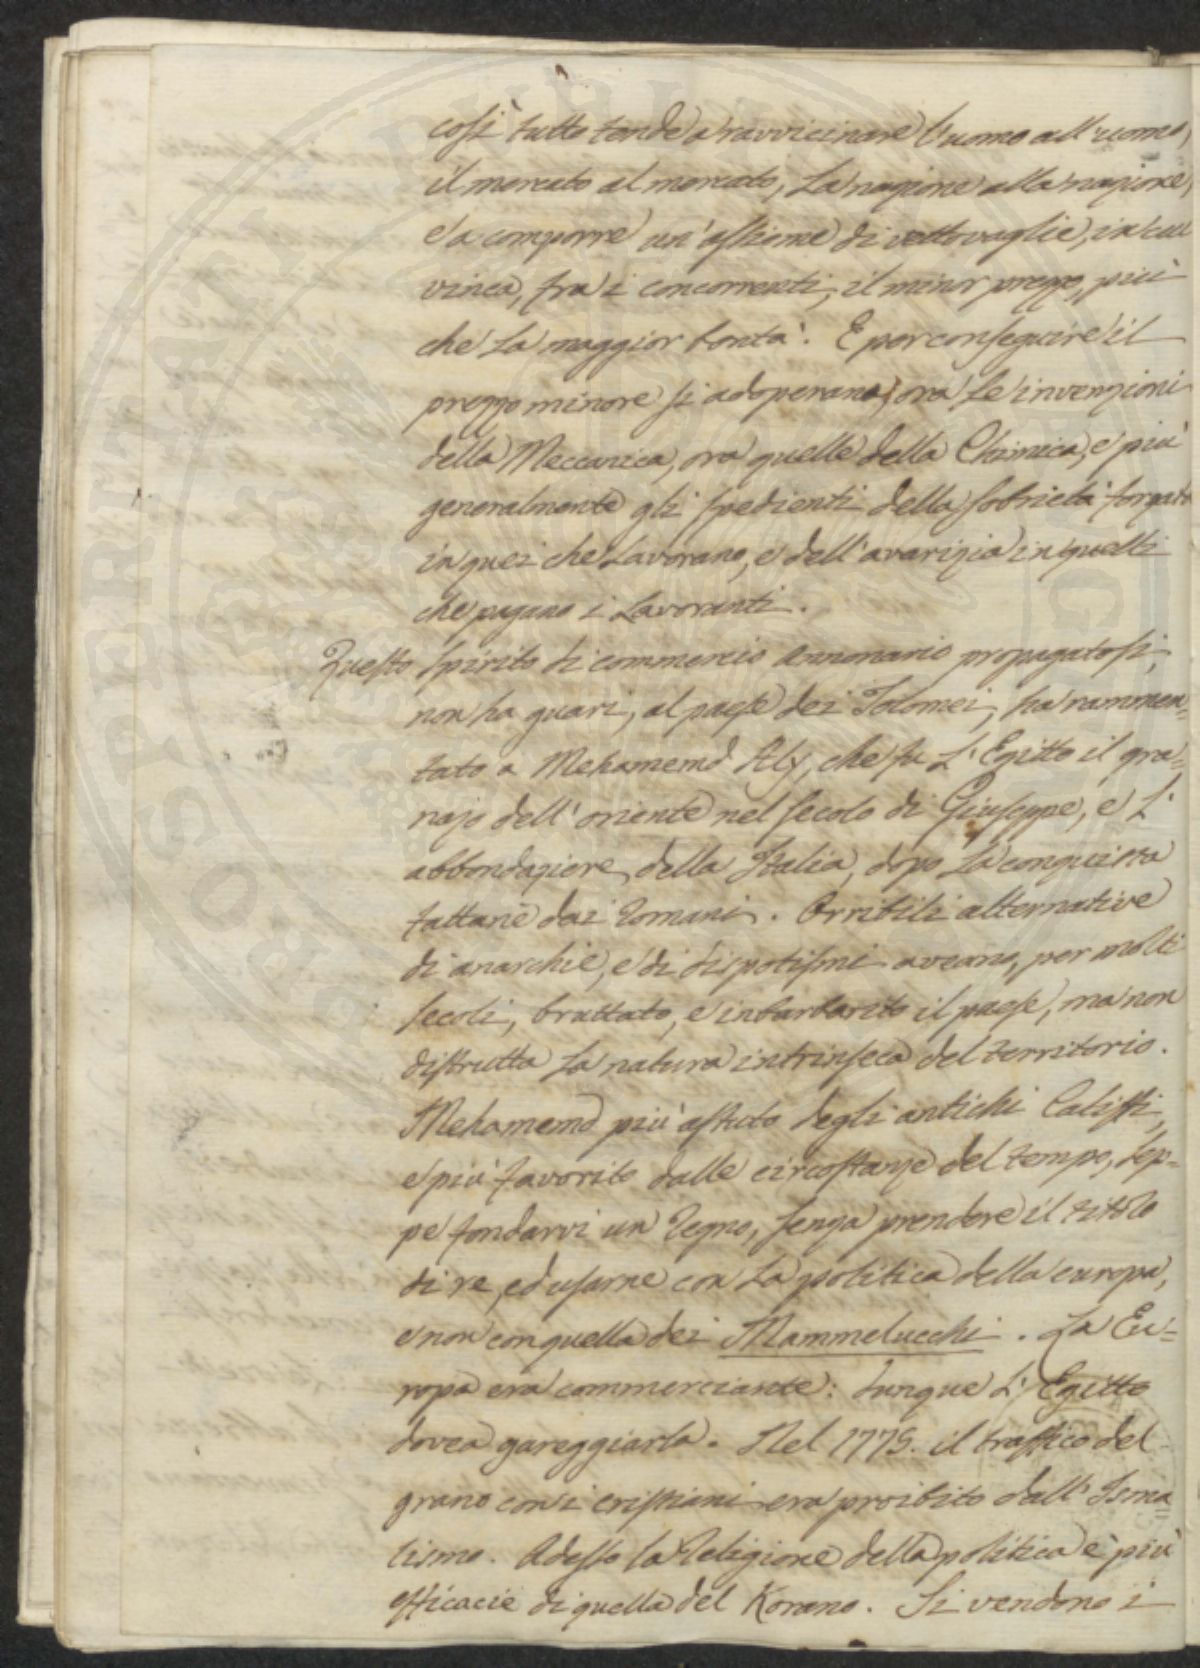 così tutto tende a ravvicinare l'uomo all'uomo,
il mercato al mercato, la nazione alla nazione,
e a comporre un'assieme di vettovaglie, in cui
vinca, fra i concorrenti, il minor prezzo, più
che la maggior bontà. E per conseguire il
prezzo minore si adoperano, ora le invenzioni
della Meccanica, ora quelle della Chimica, e più
generalmente gli spedienti della sobrietà forzata
in quei che lavorano, e dell'avarizia in quelli
che pagano i lavoranti.
Questo spirito di commercio annonario propagatosi,
non ha guari, al paese dei Tolomei, ha rammen=
tato a Mehamemd Aly, che fu l'Egitto il gra=
najo dell'oriente nel secolo di Giuseppe, e l'
abbondaziere della Italia, dopo la conquista
fattane dai Romani. Orribili alternative
di anarchie, e di dispotismi aveano, per molti
secoli, bruttato, e inbarbarito il paese, ma non
distrutta la natura intrinseca del territorio.
Mehamemd più astuto degli antichi Califfi,
e più favorito dalle circostanze del tempo, sep=
pe fondarvi un Regno, senza prendere il titolo
di re, ed usarne con la politica della europa,
e non con quella dei Mammelucchi. La Eu=
ropa era commerciante: dunque l'Egitto
dovea gareggiarla. Nel 1775. il traffico del
grano con i cristiani era proibito dall'Isma
lismo. Adesso la Religione della politica è più
efficacie di quella del Korano. Si vendono i
PROSPERITATI PUBLICAE